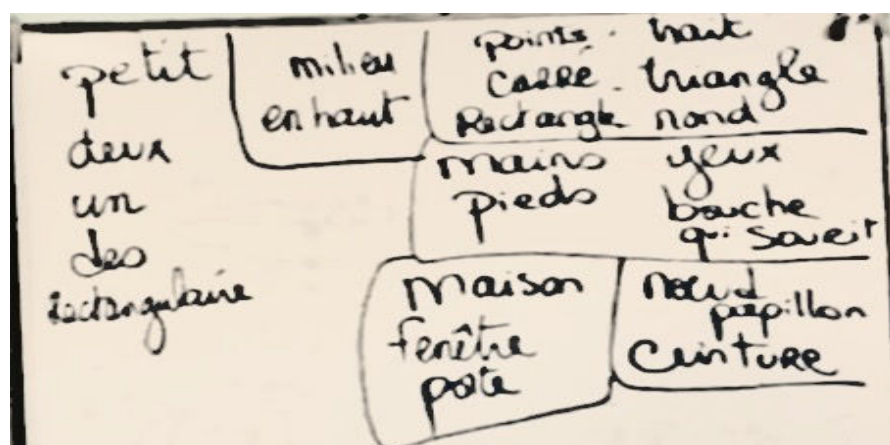 petit
deux
un
des
rectangulaire
milieu
en haut
points - trait
carré - triangle
Rectangle rond
mains yeux
pieds bouche
qui sourit
maison
fenêtre
porte
noeud
papillon
Ceinture